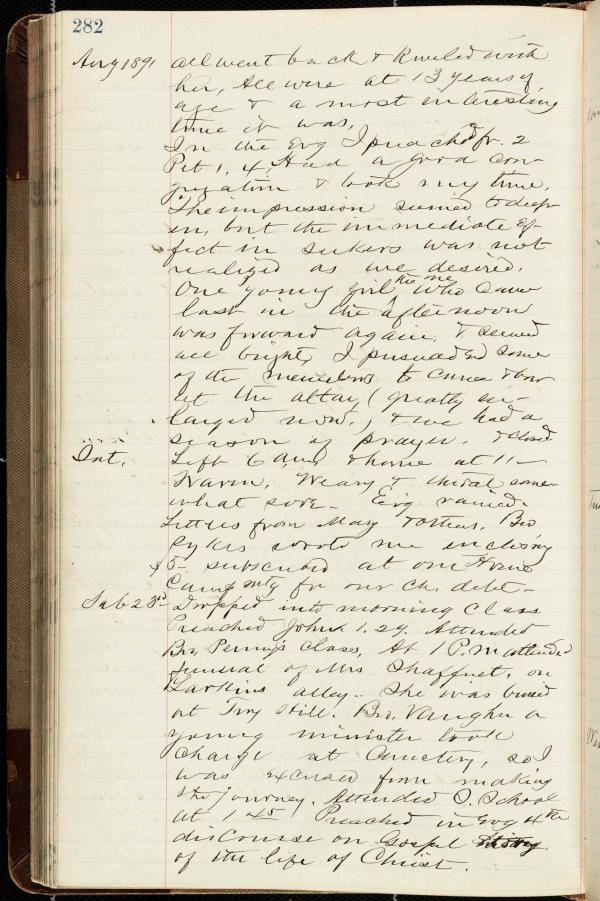 282
Aug 1891 all went back & kneeled with
her, All were at 13 years of
age & a most interesting
time it was,
In the Evg I preached fr. 2
Pet 1, 4, Had a good con-
gregation & took my time.
The impression seemed to deep-
en, but the immediate ef-
fect in seekers was not
realized as we desired.
One young girl, the one who came
last in the afternoon
was forward again, & seemed
all bright, I pursuaded some
of the members to come & bow
at the altar (greatly en-
larged now.) & we had a
season of prayer. & closed
Sat. Left 6 am & home at 11 -
Warm. Weary & throat some-
what sore - Evg rained.
Letters from Mary & others. Bro
Sykes wrote me enclosing
$5- subscribed at our Home
Camp mtg for our ch. debt -
Sab 23rd Dropped into morning Class
Preached John 1. 29. Attended
Bro, Penny's Class, At 1 P.m attended
funeral of Mrs Shaffner, on
Larkins alley - She was buried
at Troy Hill. Bro. Vaughn a
young minister took
charge at Cemetery, so I
was excused from making
the journey. Attended S. School
at 1 45 Preached in Evg 4th
discourse on Gospel
of the life of Christ.